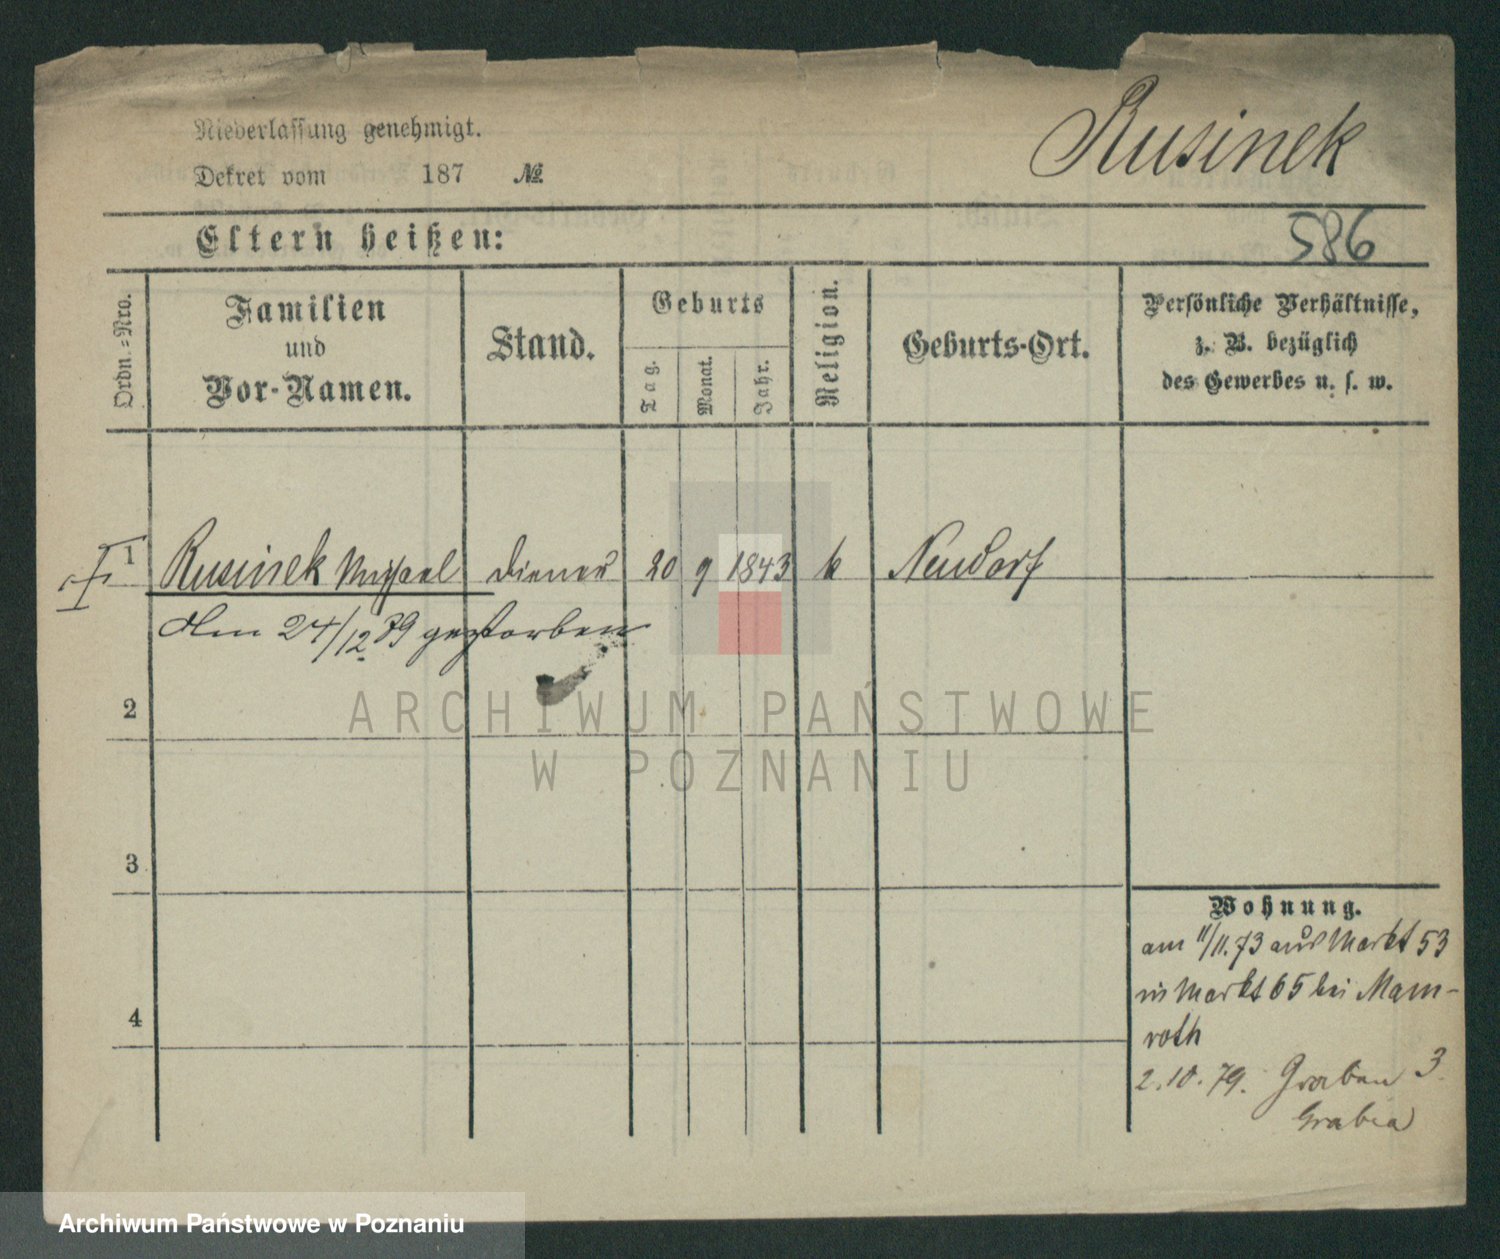 Niederlassung genehmigt.
Dekret vom 187 №
Rusinek
Eltern heißen:
586
Ordn.=Nro.
Familien
und
Vor-Namen.
Stand.
Geburts
Tag.
Monat.
Jahr.
Religion.
Geburts-Ort.
Persönliche Verhältnisse,
z. B. bezüglich
des Gewerbes u. s. w.
1 Rusinek Michael Diener 20 9 1843 k Neudorf
Am 24/12 79 gestorben
2
3
4
Wohnung.
am 11/11.73 aus Markt 53
in Markt 65 bei Mam-
roth
2.10.79. Graben 3
Grabia
ARCHIWUM PAŃSTWOWE
W POZNANIU
Archiwum Państwowe w Poznaniu